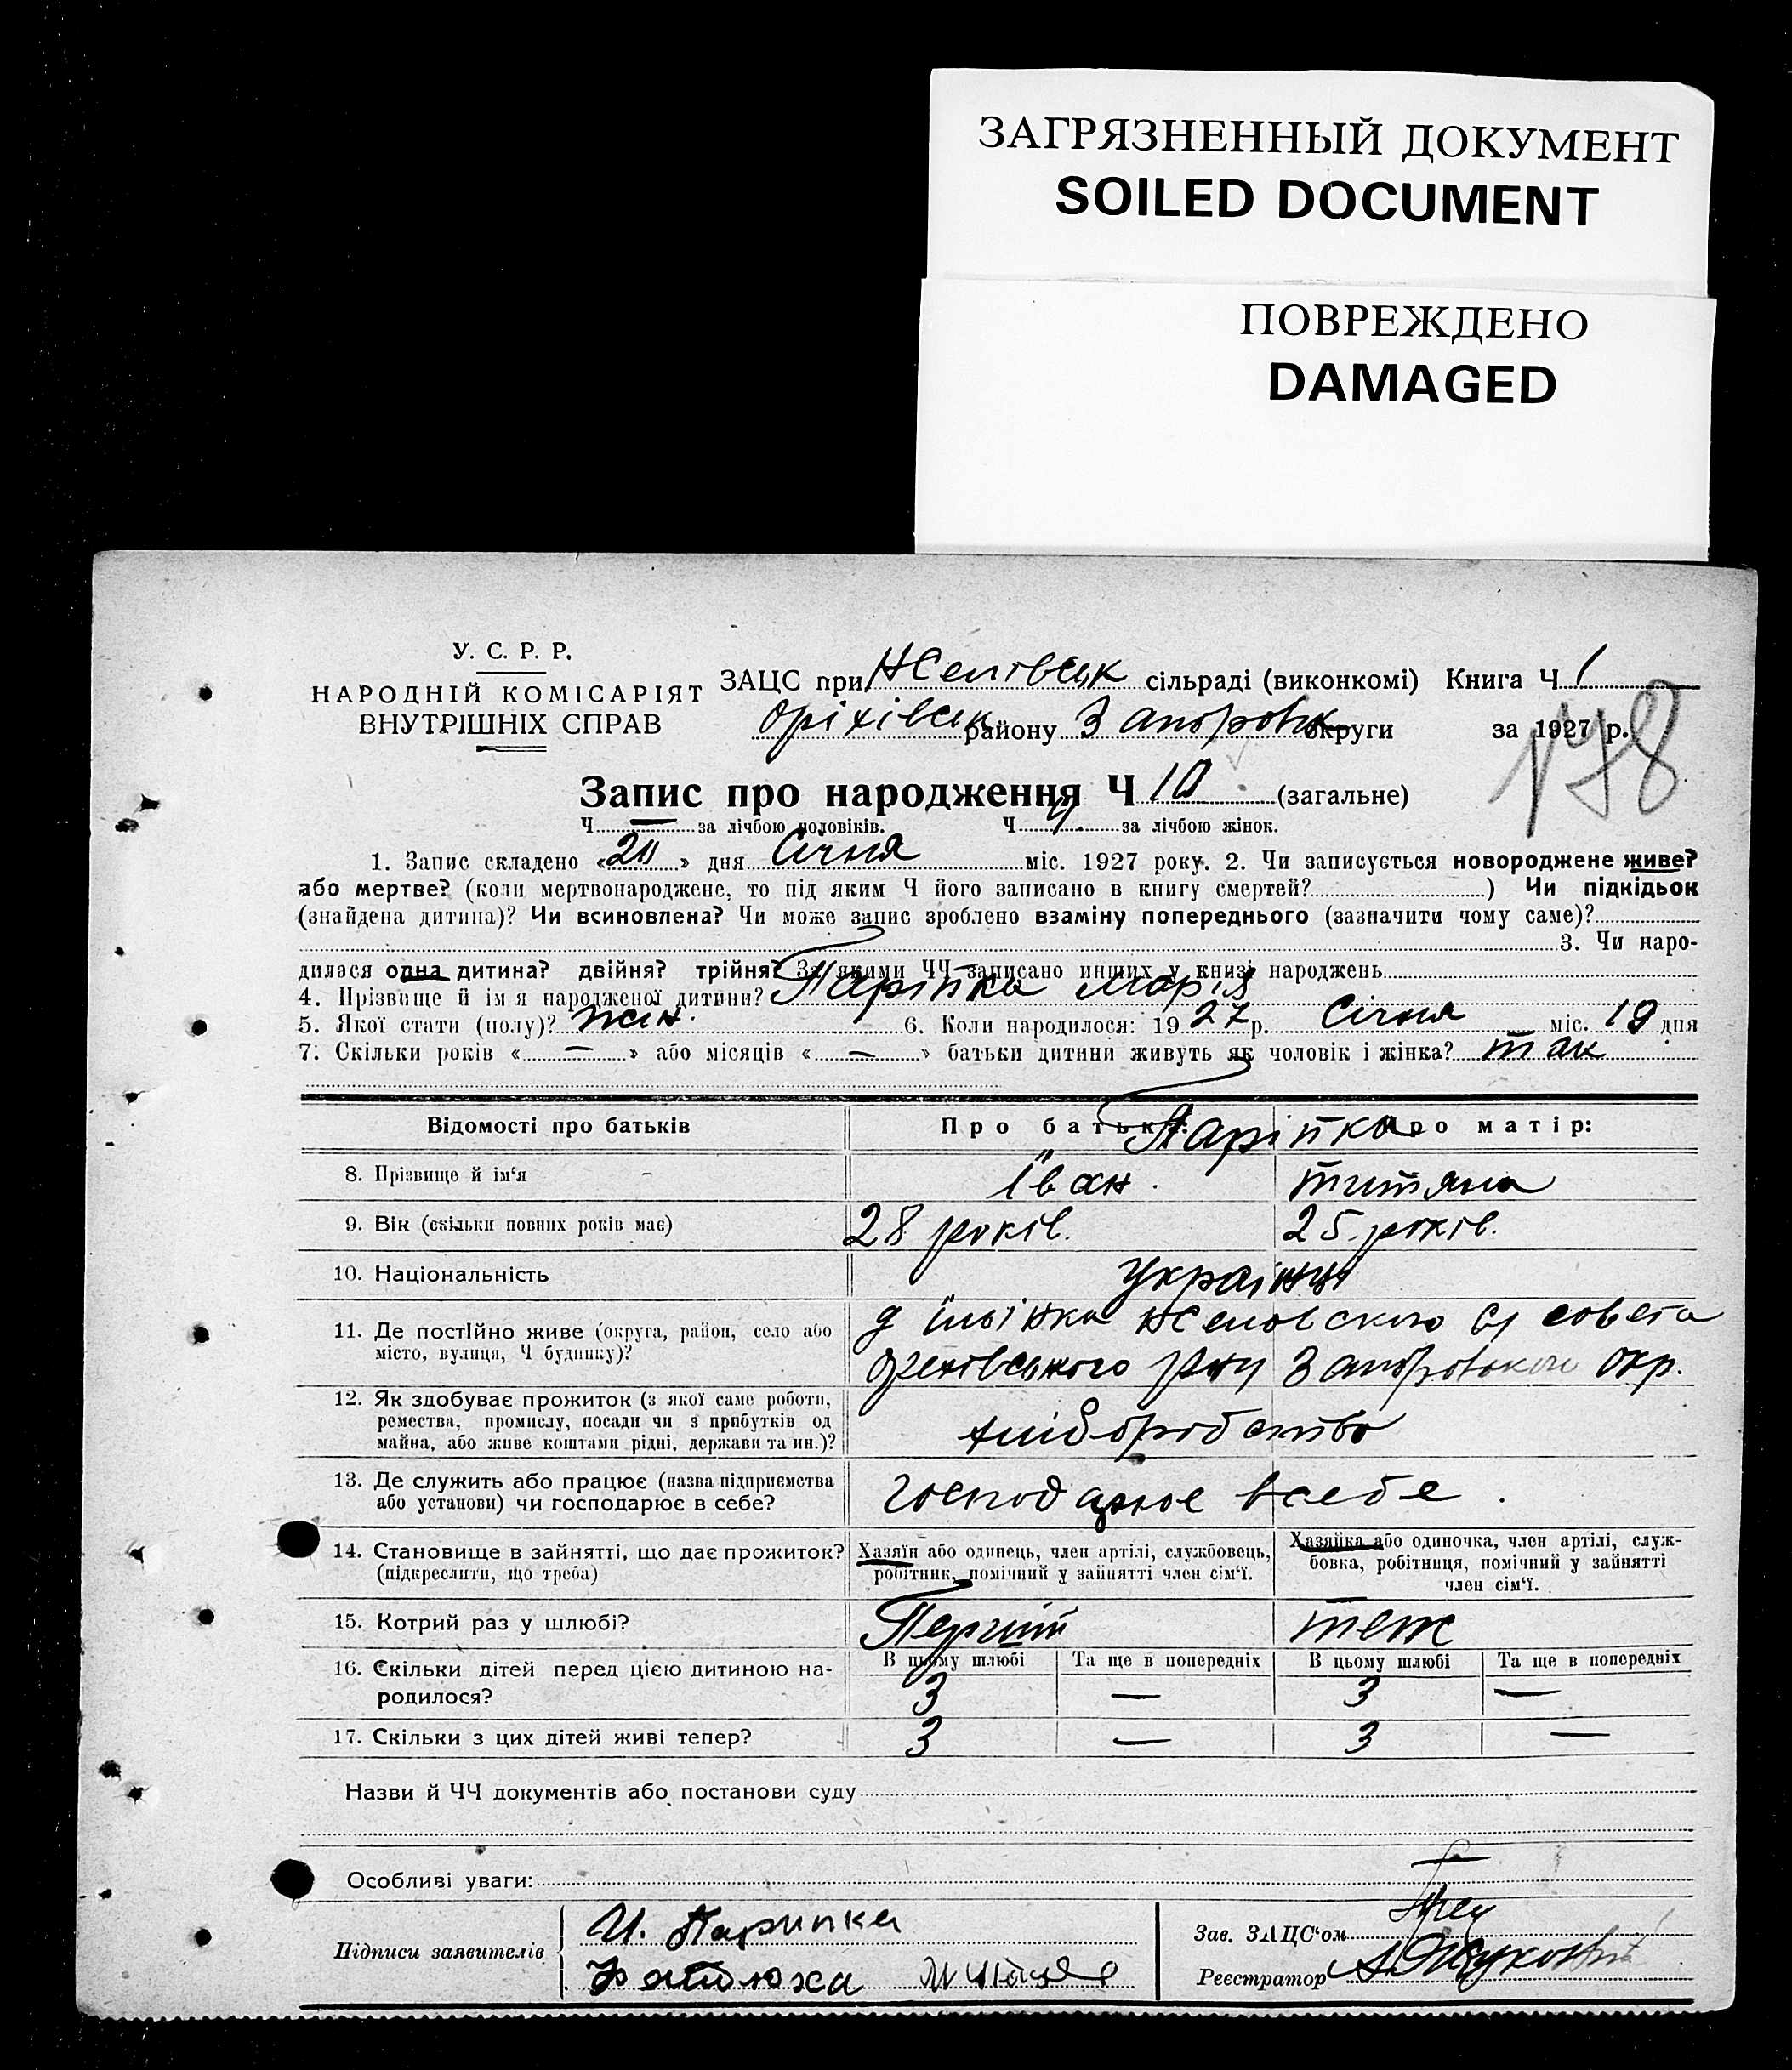 ЗАГРЯЗНЕННЫЙ ДОКУМЕНТ
SOILED DOCUMENT
ПОВРЕЖДЕНО
DAMAGED
У. С. Р. Р.
НАРОДНІЙ КОМІСАРІЯТ
ВНУТРІШНІХ СПРАВ
ЗАЦС при Жепівськ сільраді (виконкомі) Книга Ч 1
Оріхівськ району Запоровж округи за 1927 р.
178
Запис про народження Ч 10 (загальне)
Ч — за лічбою чоловіків. Ч 4 за лічбою жінок.
1. Запис складено «20» дня Січня міс. 1927 року. 2. Чи записується новороджене живе?
або мертве? (коли мертвонароджене, то під яким Ч його записано в книгу смертей? ) Чи підкідьок
(знайдена дитина)? Чи всиновлена? Чи може запис зроблено взаміну попереднього (зазначити чому саме)?
3. Чи наро-
дилася одна дитина? двійня? трійня? За якими ЧЧ записано инших у книзі народжень
4. Прізвище й ім я народженої дитини? Паріпка Марія
5. Якої стати (полу)? жін. 6. Коли народилося: 1927 р. Січня міс. 19 дня
7. Скільки років « — » або місяців « — » батьки дитини живуть як чоловік і жінка? так
Відомості про батьків Про батька: Про матір:
Паріпка
8. Прізвище й ім‘я Іван. титяна
9. Вік (скільки повних років має) 28 років. 25 років.
10. Національність Українці
11. Де постійно живе (округа, район, село або
місто, вулиця, Ч будинку)?
12. Як здобуває прожиток (з якої саме роботи,
ремества, промислу, посади чи з прибутків од
майна, або живе коштами рідні, держави та ин.)? хліборобство
13. Де служить або працює (назва підприємства
або установи) чи господарює в себе? господарює в себе.
14. Становище в зайнятті, що дає прожиток?
(підкреслити, що треба)
Хазяїн або одинець, член артілі, службовець,
робітник, помічний у зайнятті член сім‘ї.
Хазяйка або одиночка, член артілі, служ-
бовка, робітниця, помічний у зайнятті
член сім‘ї.
15. Котрий раз у шлюбі? Перший теж
В цьому шлюбі Та ще в попередніх В цьому шлюбі Та ще в попередніх
16. Скільки дітей перед цією дитиною на-
родилося? 3 — 3 —
17. Скільки з цих дітей живі тепер? 3 — 3 —
Назви й ЧЧ документів або постанови суду
Особливі уваги:
Підписи заявителів И. Парипка
Зав. ЗАЦС‘ом
Реєстратор